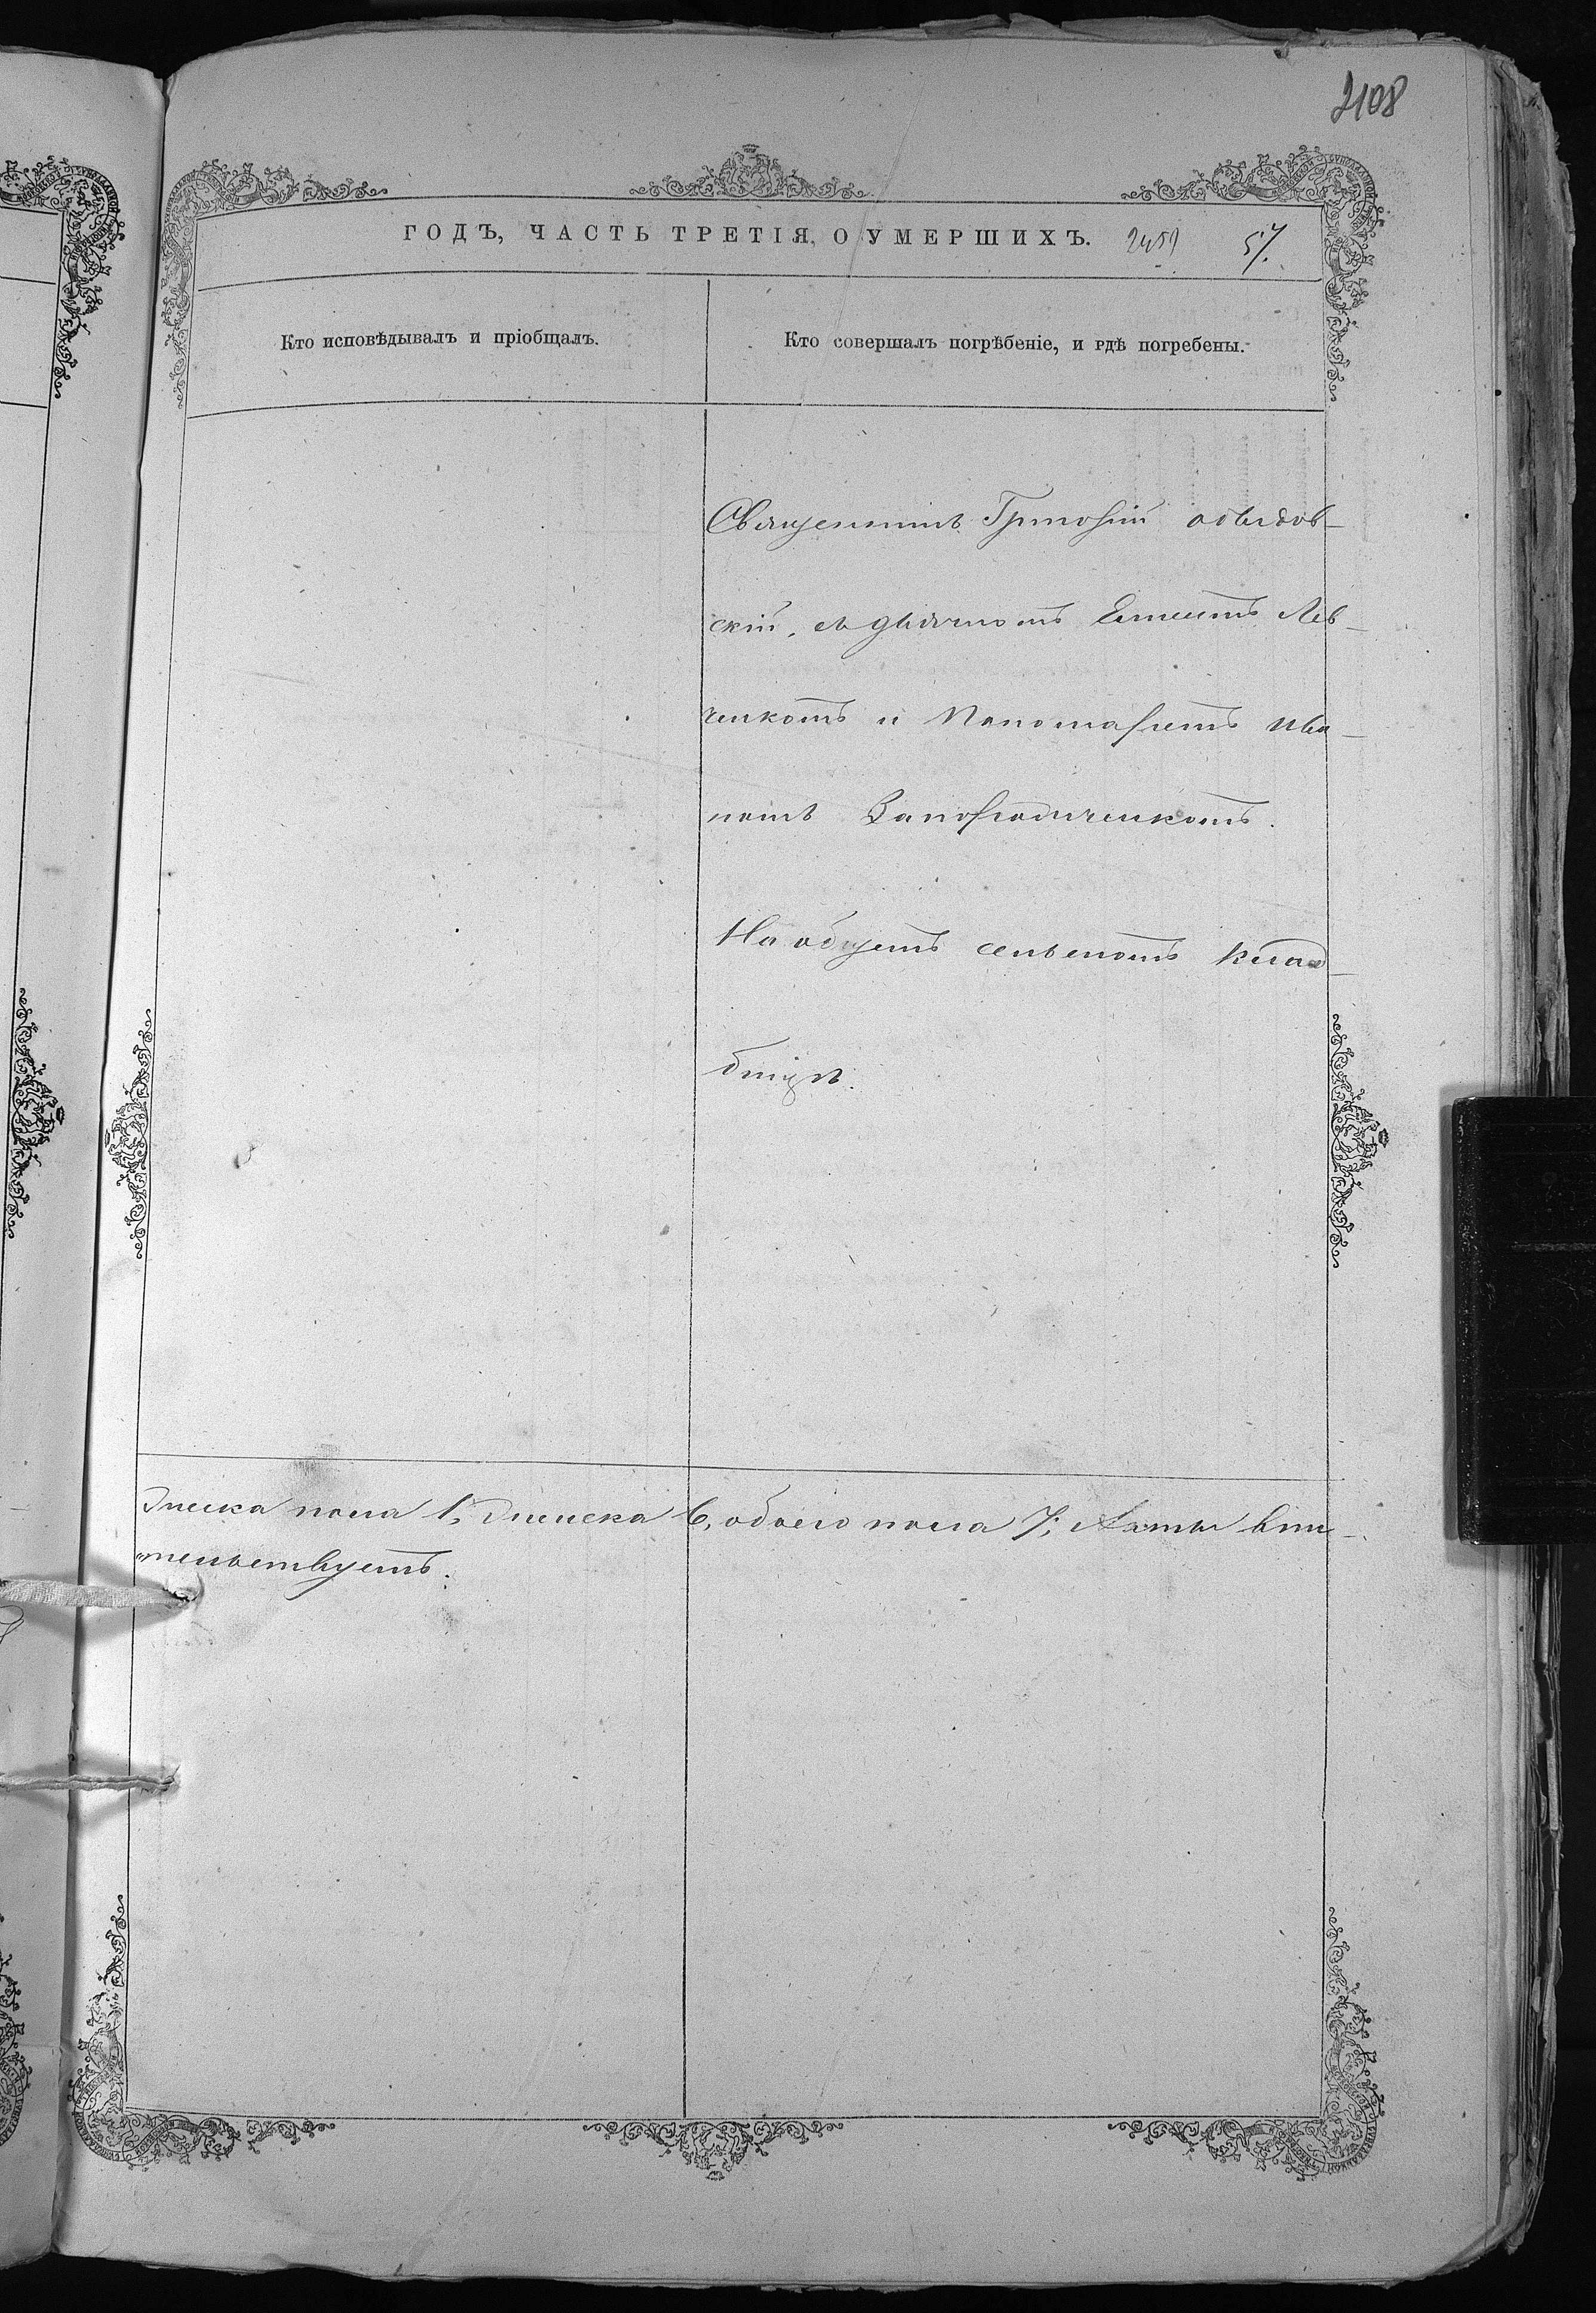 2108
ГОДЪ, ЧАСТЬ ТРЕТІЯ, О УМЕРШИХЪ. 2459 57.
Кто исповѣдывалъ и пріобщалъ.
Кто совершалъ погрѣбеніе, и гдѣ погребены.
Священникъ Григорій
скій, съ дьячкомъ Лев-
ченкомъ и Пономаремъ Ива-
номъ Запорожченкомъ.
На общемъ сельскомъ клад-
бищѣ.
жеска пола 1, женска 6, обоего пола 7;
тельствуетъ.